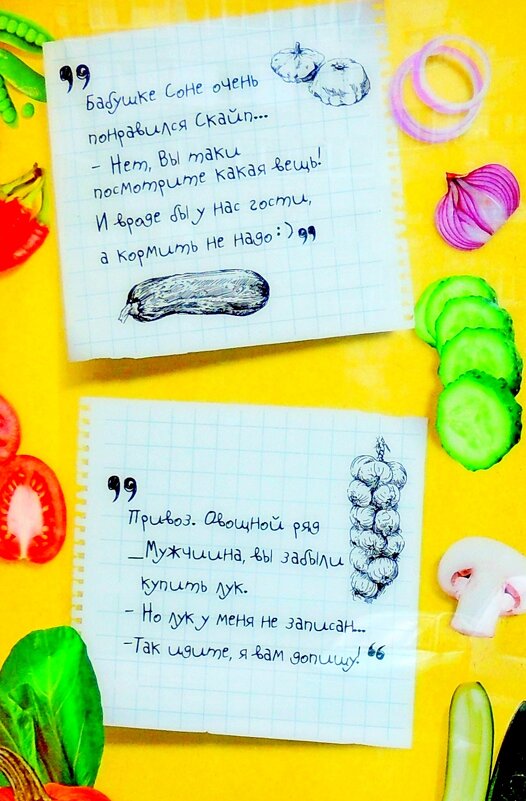 „
Бабушке Соне очень
понравился Скайп...
- Нет, Вы таки
посмотрите какая вещь!
И вроде бы у нас гости,
а кормить не надо:) „
„
Привоз. Овощной ряд
_Мужчиина, вы забыли
купить лук.
- Но лук у меня не записан...
-Так идите, я вам допишу! “